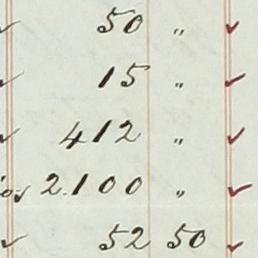 ✓ 50 " ✓
✓ 15 " ✓
✓ 412 " ✓
2.100 " ✓
✓ 52 50 ✓